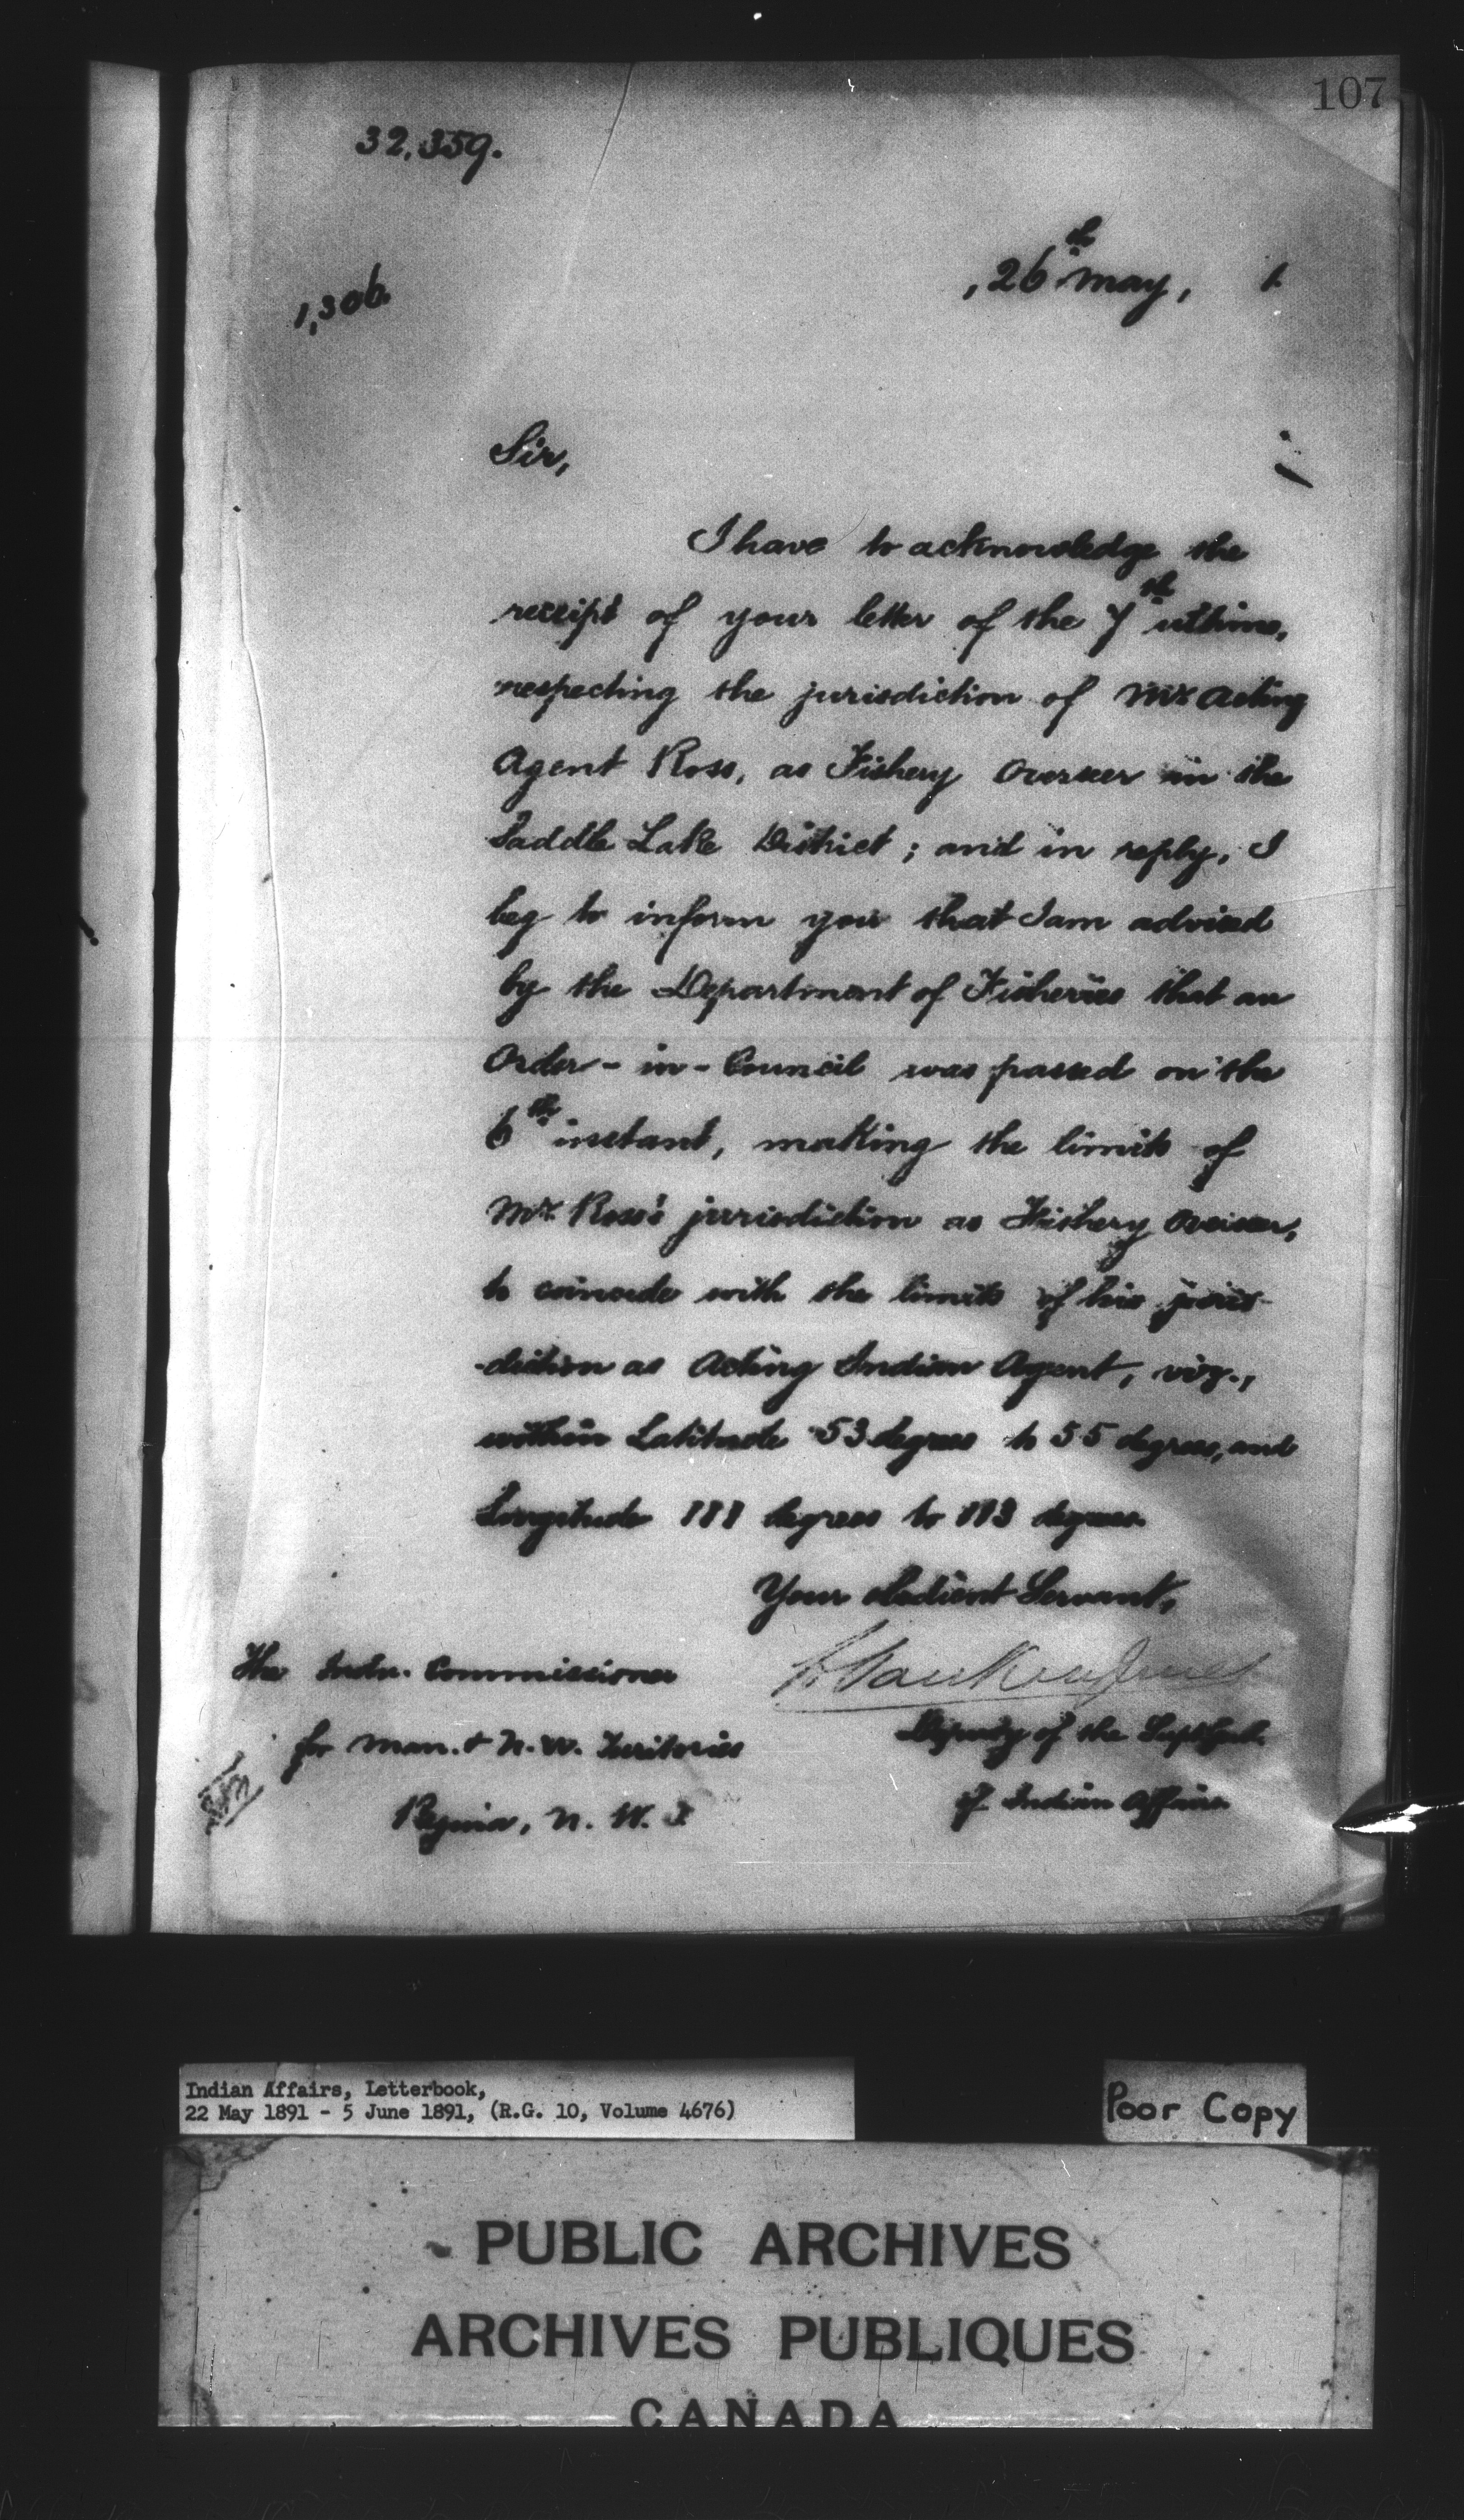 107
32,359.
26th May, 1
1,306
Sir,
I have to acknowledge the
receipt of your letter of the 7th ultimo,
respecting the jurisdiction of Mr. Acting
Agent Ross, as Fishery Overseer in the
Saddle Lake District; and in reply, I
beg to inform you that I am advised
by the Department of Fisheries that an
Order-in-Council was passed on the
6th instant, making the limits of
Mr. Ross's jurisdiction as Fishery Overseer,
to coincide with the limits of his juris-
-diction as Acting Indian Agent, viz.,
within Latitude 53 degrees to 55 degrees, and
Longitude 111 degrees to 113 degrees.
Your obedient Servant,
L. Vankoughnet
The Indn. Commissioner
Deputy of the Supt. Genl.
for Man. & N.W. Territories
of Indian Affairs.
Regina, N.W.T.
Indian Affairs, Letterbook,
22 May 1891 - 5 June 1891, (R.G. 10, Volume 4676)
Poor Copy
PUBLIC ARCHIVES
ARCHIVES PUBLIQUES
CANADA